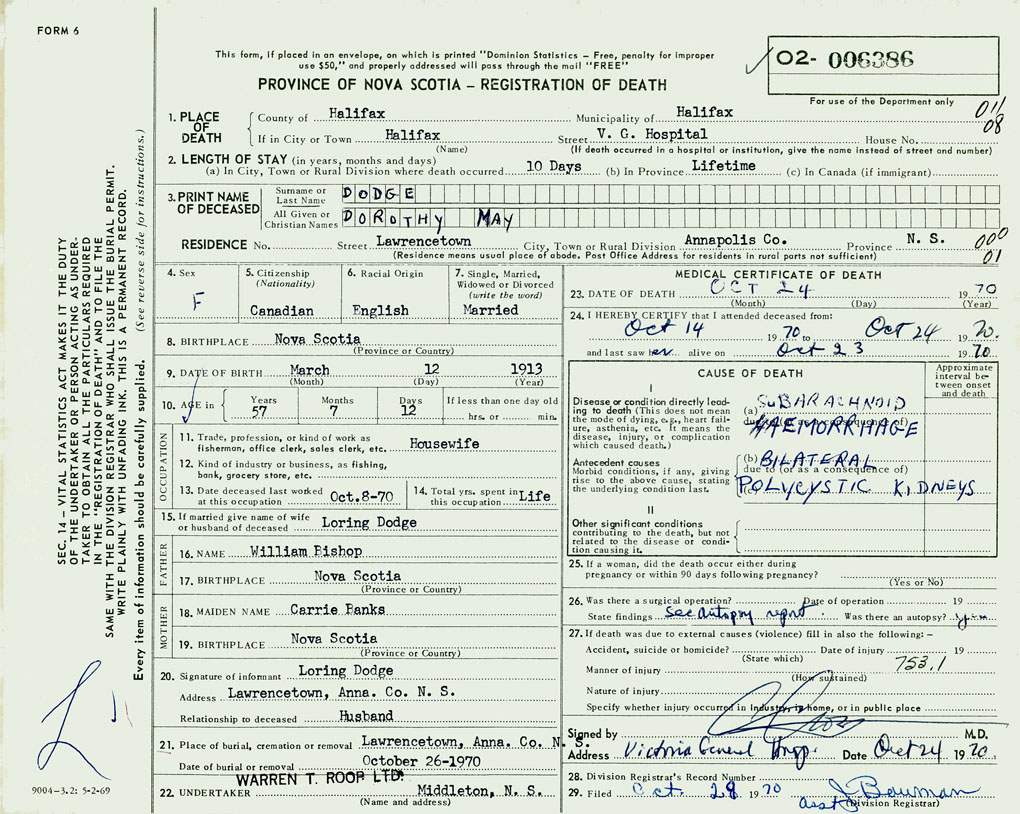 FORM 6
This form, if placed in an envelope, on which is printed "Dominion Statistics – Free, penalty for improper
use $50," and properly addressed will pass through the mail "FREE"
O2- 006386
For use of the Department only
PROVINCE OF NOVA SCOTIA – REGISTRATION OF DEATH
SEC. 14 – VITAL STATISTICS ACT MAKES IT THE DUTY
OF THE UNDERTAKER OR PERSON ACTING AS UNDER-
TAKER TO OBTAIN ALL THE PARTICULARS REQUIRED
IN THE "REGISTRATION OF DEATH" AND TO FILE THE
SAME WITH THE DIVISION REGISTRAR WHO SHALL ISSUE THE BURIAL PERMIT.
WRITE PLAINLY WITH UNFADING INK. THIS IS A PERMANENT RECORD.
Every item of information should be carefully supplied. (See reverse side for instructions.)
1. PLACE OF DEATH
County of Halifax Municipality of Halifax 011
08
If in City or Town Halifax Street V. G. Hospital House No.
(Name) (If death occurred in a hospital or institution, give the name instead of street and number)
2. LENGTH OF STAY (in years, months and days)
(a) In City, Town or Rural Division where death occurred 10 Days (b) In Province Lifetime (c) In Canada (if immigrant)
3. PRINT NAME OF DECEASED
Surname or Last Name DODGE
All Given or Christian Names DOROTHY MAY
RESIDENCE No. Street Lawrencetown City, Town or Rural Division Annapolis Co. Province N. S. 000
01
(Residence means usual place of abode. Post Office Address for residents in rural parts not sufficient)
4. Sex F
5. Citizenship (Nationality) Canadian
6. Racial Origin English
7. Single, Married, Widowed or Divorced (write the word) Married
8. BIRTHPLACE Nova Scotia
(Province or Country)
9. DATE OF BIRTH March 12 1913
(Month) (Day) (Year)
10. AGE in Years 57 Months 7 Days 12 If less than one day old hrs. or min.
OCCUPATION
11. Trade, profession, or kind of work as fisherman, office clerk, sales clerk, etc. Housewife
12. Kind of industry or business, as fishing, bank, grocery store, etc.
13. Date deceased last worked at this occupation Oct.8-70
14. Total yrs. spent in this occupation Life
15. If married give name of wife or husband of deceased Loring Dodge
FATHER
16. NAME William Bishop
17. BIRTHPLACE Nova Scotia
(Province or Country)
MOTHER
18. MAIDEN NAME Carrie Banks
19. BIRTHPLACE Nova Scotia
(Province or Country)
20. Signature of informant Loring Dodge
Address Lawrencetown, Anna. Co. N. S.
Relationship to deceased Husband
21. Place of burial, cremation or removal Lawrencetown, Anna. Co. N. S.
Date of burial or removal October 26-1970
WARREN T. ROOP LTD.
22. UNDERTAKER Middleton, N. S.
(Name and address)
9004-3.2: 5-2-69
MEDICAL CERTIFICATE OF DEATH
23. DATE OF DEATH OCT 24 1970
(Month) (Day) (Year)
24. I HEREBY CERTIFY that I attended deceased from:
Oct 14 1970 Oct 24 1970.
and last saw her alive on Oct 23 1970
CAUSE OF DEATH
Approximate interval between onset and death
I
Disease or condition directly leading to death (This does not mean the mode of dying, e.g., heart failure, asthenia, etc. It means the disease, injury, or complication which caused death.)
(a) SUBARACHNOID
due to (or as a consequence of)
HAEMORRHAGE
Antecedent causes
Morbid conditions, if any, giving rise to the above cause, stating the underlying condition last.
(b) BILATERAL
due to (or as a consequence of)
POLYCYSTIC KIDNEYS
II
Other significant conditions contributing to the death, but not related to the disease or condition causing it.
25. If a woman, did the death occur either during pregnancy or within 90 days following pregnancy?
(Yes or No)
26. Was there a surgical operation? Date of operation 19
State findings see autopsy report. Was there an autopsy?
27. If death was due to external causes (violence) fill in also the following: –
Accident, suicide or homicide? Date of injury 19
(State which) 753.1
Manner of injury
(How sustained)
Nature of injury
Specify whether injury occurred in Industry, in home, or in public place
Signed by M.D.
Address Victoria General Hosp. Date Oct 24 1970
28. Division Registrar's Record Number
29. Filed Oct. 28 1970 J Bauman
Asst (Division Registrar)